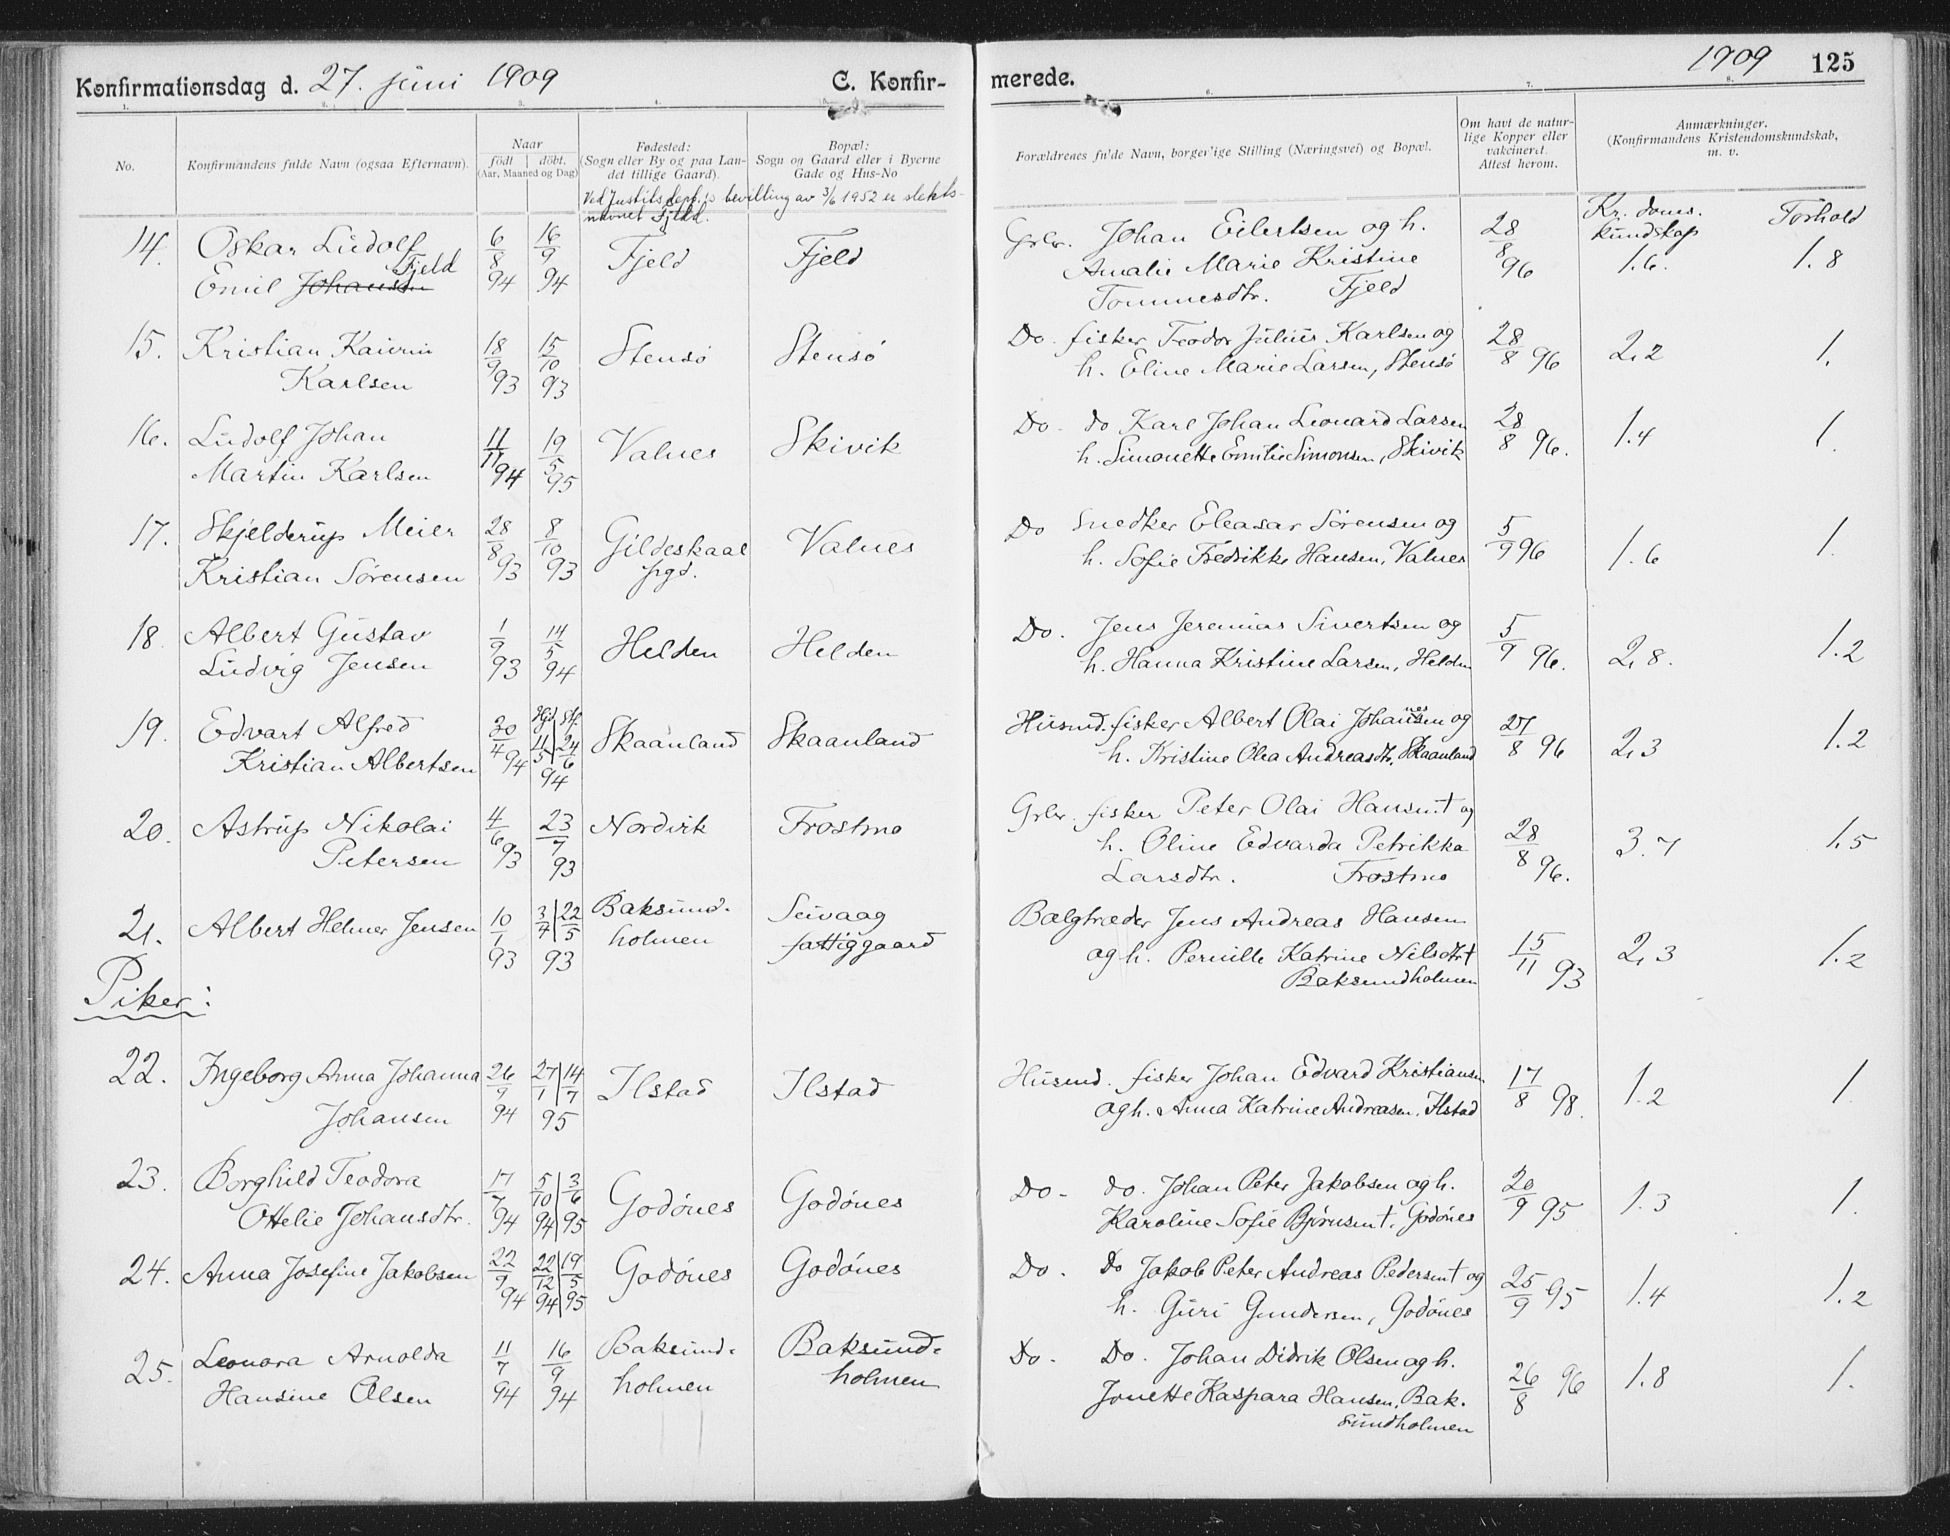 Konfirmationsdag d. 27. juni 1909
C. Konfir-
merede.
1909
125
1. 2. 3. 4. 5. 6. 7. 8.
No.
Konfirmandens fulde Navn (ogsaa Efternavn).
Naar
födt döbt.
(Aar, Maaned og Dag)
Fødested:
(Sogn eller By og paa Lan-
det tillige Gaard).
Bopæl:
Sogn og Gaard eller i Byerne
Gade og Hus-No
Forældrenes fulde Navn, borgerlige Stilling (Næringsvei) og Bopæl.
Om havt de natur-
lige Kopper eller
vakcineret.
Attest herom.
Anmærkninger.
(Konfirmandens Kristendomskundskab,
m. v.
Ved Justitsdept.s bevilling av 3/6 1952 er slekts-
navnet Fjeld.
Kr. doms.
kundskap
Forhold
14. Oskar Ludolf
Fjeld
Emil Johansen
6/8 94
16/9 94
Fjeld
Fjeld
Grbr. Johan Eilertsen og h.
Amalie Marie Kristine
Tommesdtr. Fjeld
28/8 96
1.6.
1.8
15. Kristian Kaivin
Karlsen
18/9 93
15/10 93
Stensö
Stensö
Do. fisker Teodor Julius Karlsen og
h. Eline Marie Larsen, Stensö
28/8 96
2,2
1.
16. Ludolf Johan
Martin Karlsen
11/11 94
19/5 95
Valnes
Skivik
Do - do Karl Johan Leonard Larsen
h. Simonette Emilie Simonsen, Skivik
28/8 96.
1.4
1
17. Skjelderup Meier
Kristian Sörensen
28/8 93
8/10 93
Gildeskaal
prgd.
Valnes
Do Snedker Eleasar Sörensen og
h. Sofie Fredrikke Hansen, Valnes
5/9 96
1.6
1.
18. Albert Gustav
Ludvig Jensen
1/9 93
14/5 94
Helden
Helden
Do. Jens Jeremias Sivertsen og
h. Hanna Kristine Larsen, Helden
5/9 96.
2,8.
1.2
19. Edvart Alfred
Kristian Albertsen
30/4 94
Hjd. Stf.
11/5 | 24/6
94
Skaanland
Skaanland
Husmd. fisker Albert Olai Johansen og
h. Kristine Olea Andreasdtr. Skaanland
27/8 96
2,3
1.2
20. Astrup Nikolai
Petersen
4/6 93
23/7 93
Nordvik
Frostmo
Grbr. fisker Peter Olai Hansen † og
h. Oline Edvarda Petrikka
Larsdtr. Frostmo
28/8 96.
3.7
1.5
21. Albert Helmer Jensen
10/1 93
3/4 | 22/5
93
Baksund-
holmen
Seivaag
fattiggaard
Bælgtræder Jens Andreas Hansen
og h. Pernille Katrine Nilsdtr †
Baksundholmen
15/11 93
2,3
1.2
Piker:
22. Ingeborg Anna Johanna
Johansen
26/9 94
27/1 | 14/7
95
Ilstad
Ilstad
Husmd. fisker Johan Edvard Kristiansen
og h. Anna Katrine Andreasen. Ilstad
17/8 98.
1.2
1.
23. Borghild Teodora
Ottelie Johansdtr.
17/7 94
5/10 94 | 3/6 95
Godönes
Godönes
Do - do. Johan Peter Jakobsen og h.
Karoline Sofie Bjørnsen †. Godönes
20/9 95
1.3
1.
24. Anna Josefine Jakobsen
22/9 94
22/12 94 | 19/5 95
Godönes
Godönes
Do. Do Jakob Peter Andreas Pedersen † og
h. Guri Gundersen, Godönes
25/9 95
1.4
1.2
25. Leonora Arnolda
Hansine Olsen
11/7 94
16/9 94
Baksund-
holmen
Baksund-
holmen
Do. Do. Johan Didrik Olsen og h.
Jonette Kaspara Hansen, Bak-
sundholmen
26/8 96
1.8
1.